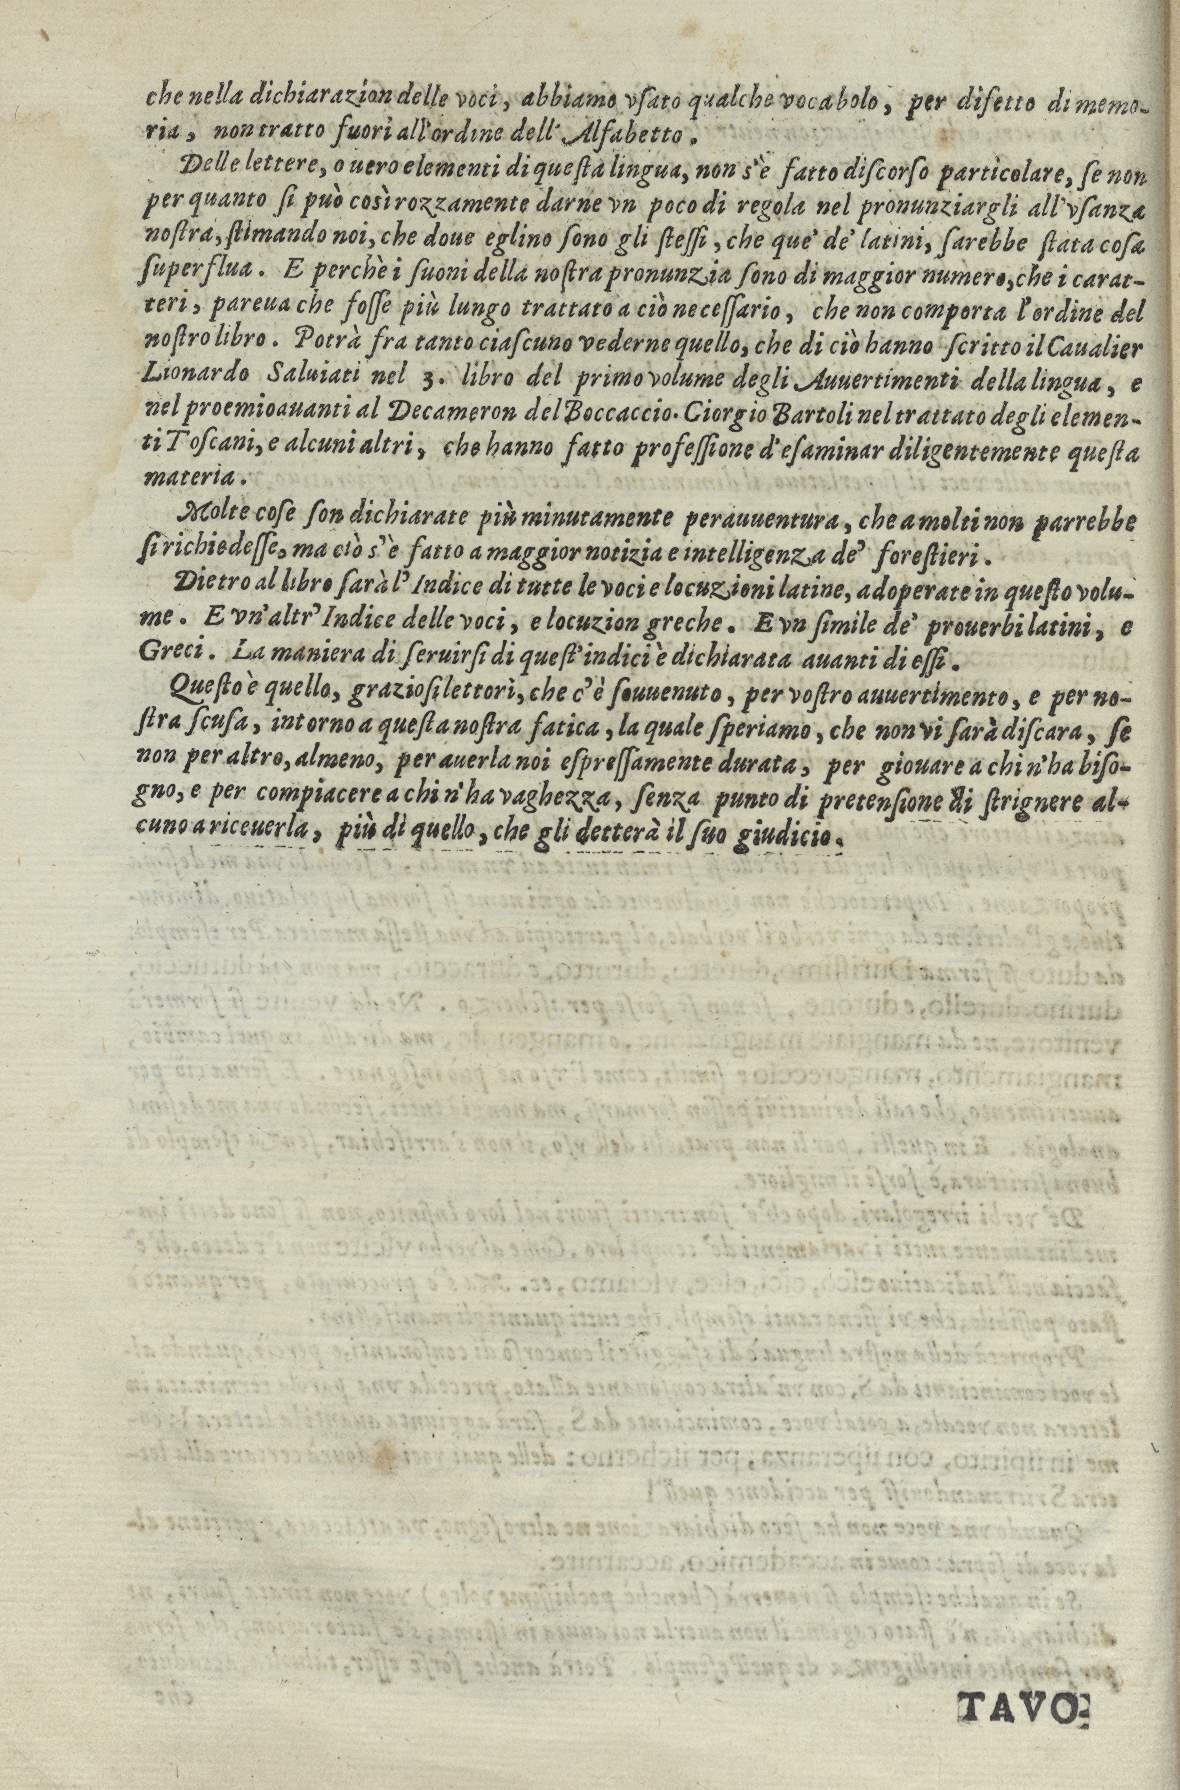 che nella dichiarazion delle voci, abbiamo vsato qualche vocabolo, per difetto di memo-
ria, non tratto fuori all'ordine dell'Alfabetto.
Delle lettere, o uero elementi di queſta lingua, non s'è fatto diſcorſo particolare, ſe non
per quanto ſi può così rozzamente darne vn poco di regola nel pronunziargli all'vſanza
noſtra, ſtimando noi, che doue eglino ſono gli ſteſſi, che que' de' latini, ſarebbe ſtata coſa
ſuperflua. E perchè i ſuoni della noſtra pronunzia ſono di maggior numero, che i carat-
teri, pareua che foſſe più lungo trattato a ciò neceſſario, che non comporta l'ordine del
noſtro libro. Potrà fra tanto ciaſcuno vederne quello, che di ciò hanno ſcritto il Caualier
Lionardo Saluiati nel 3. libro del primo volume degli Auuertimenti della lingua, e
nel proemio auanti al Decameron del Boccaccio. Giorgio Bartoli nel trattato degli elemen-
ti Toſcani, e alcuni altri, che hanno fatto profeſſione d'eſaminar diligentemente queſta
materia.
Molte coſe ſon dichiarate più minutamente perauuentura, che a molti non parrebbe
ſi richiedeſſe, ma ciò s'è fatto a maggior notizia e intelligenza de' foreſtieri.
Dietro al libro ſarà l'Indice di tutte le voci e locuzioni latine, adoperate in queſto volu-
me. E vn'altr'Indice delle voci, e locuzion greche. E vn ſimile de' prouerbi latini, e
Greci. La maniera di ſeruirſi di queſt'indici è dichiarata auanti di eſſi.
Queſto è quello, grazioſi lettori, che c'è ſouuenuto, per voſtro auuertimento, e per no-
ſtra scuſa, intorno a queſta noſtra fatica, la quale ſperiamo, che non vi ſarà diſcara, ſe
non per altro, almeno, per auerla noi eſpreſſamente durata, per giouare a chi n'ha biſo-
gno, e per compiacere a chi n'ha vaghezza, ſenza punto di pretenſione di ſtrignere al-
cuno a riceuerla, più di quello, che gli detterà il ſuo giudicio.
TAVO-